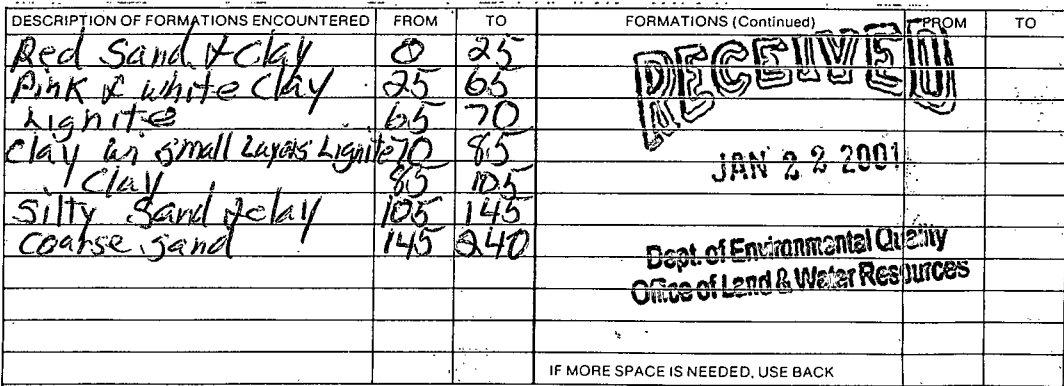 DESCRIPTION OF FORMATIONS ENCOUNTERED FROM TO
Red Sand & Clay 0 25
Pink & white Clay 25 65
Lignite 65 70
Clay w small Layers Lignite 70 85
Clay 85 105
Silty Sand & clay 105 145
Coarse sand 145 240
FORMATIONS (Continued) FROM TO
RECEIVED
JAN 22 2001
Dept. of Environmental Quality
Office of Land & Water Resources
IF MORE SPACE IS NEEDED, USE BACK